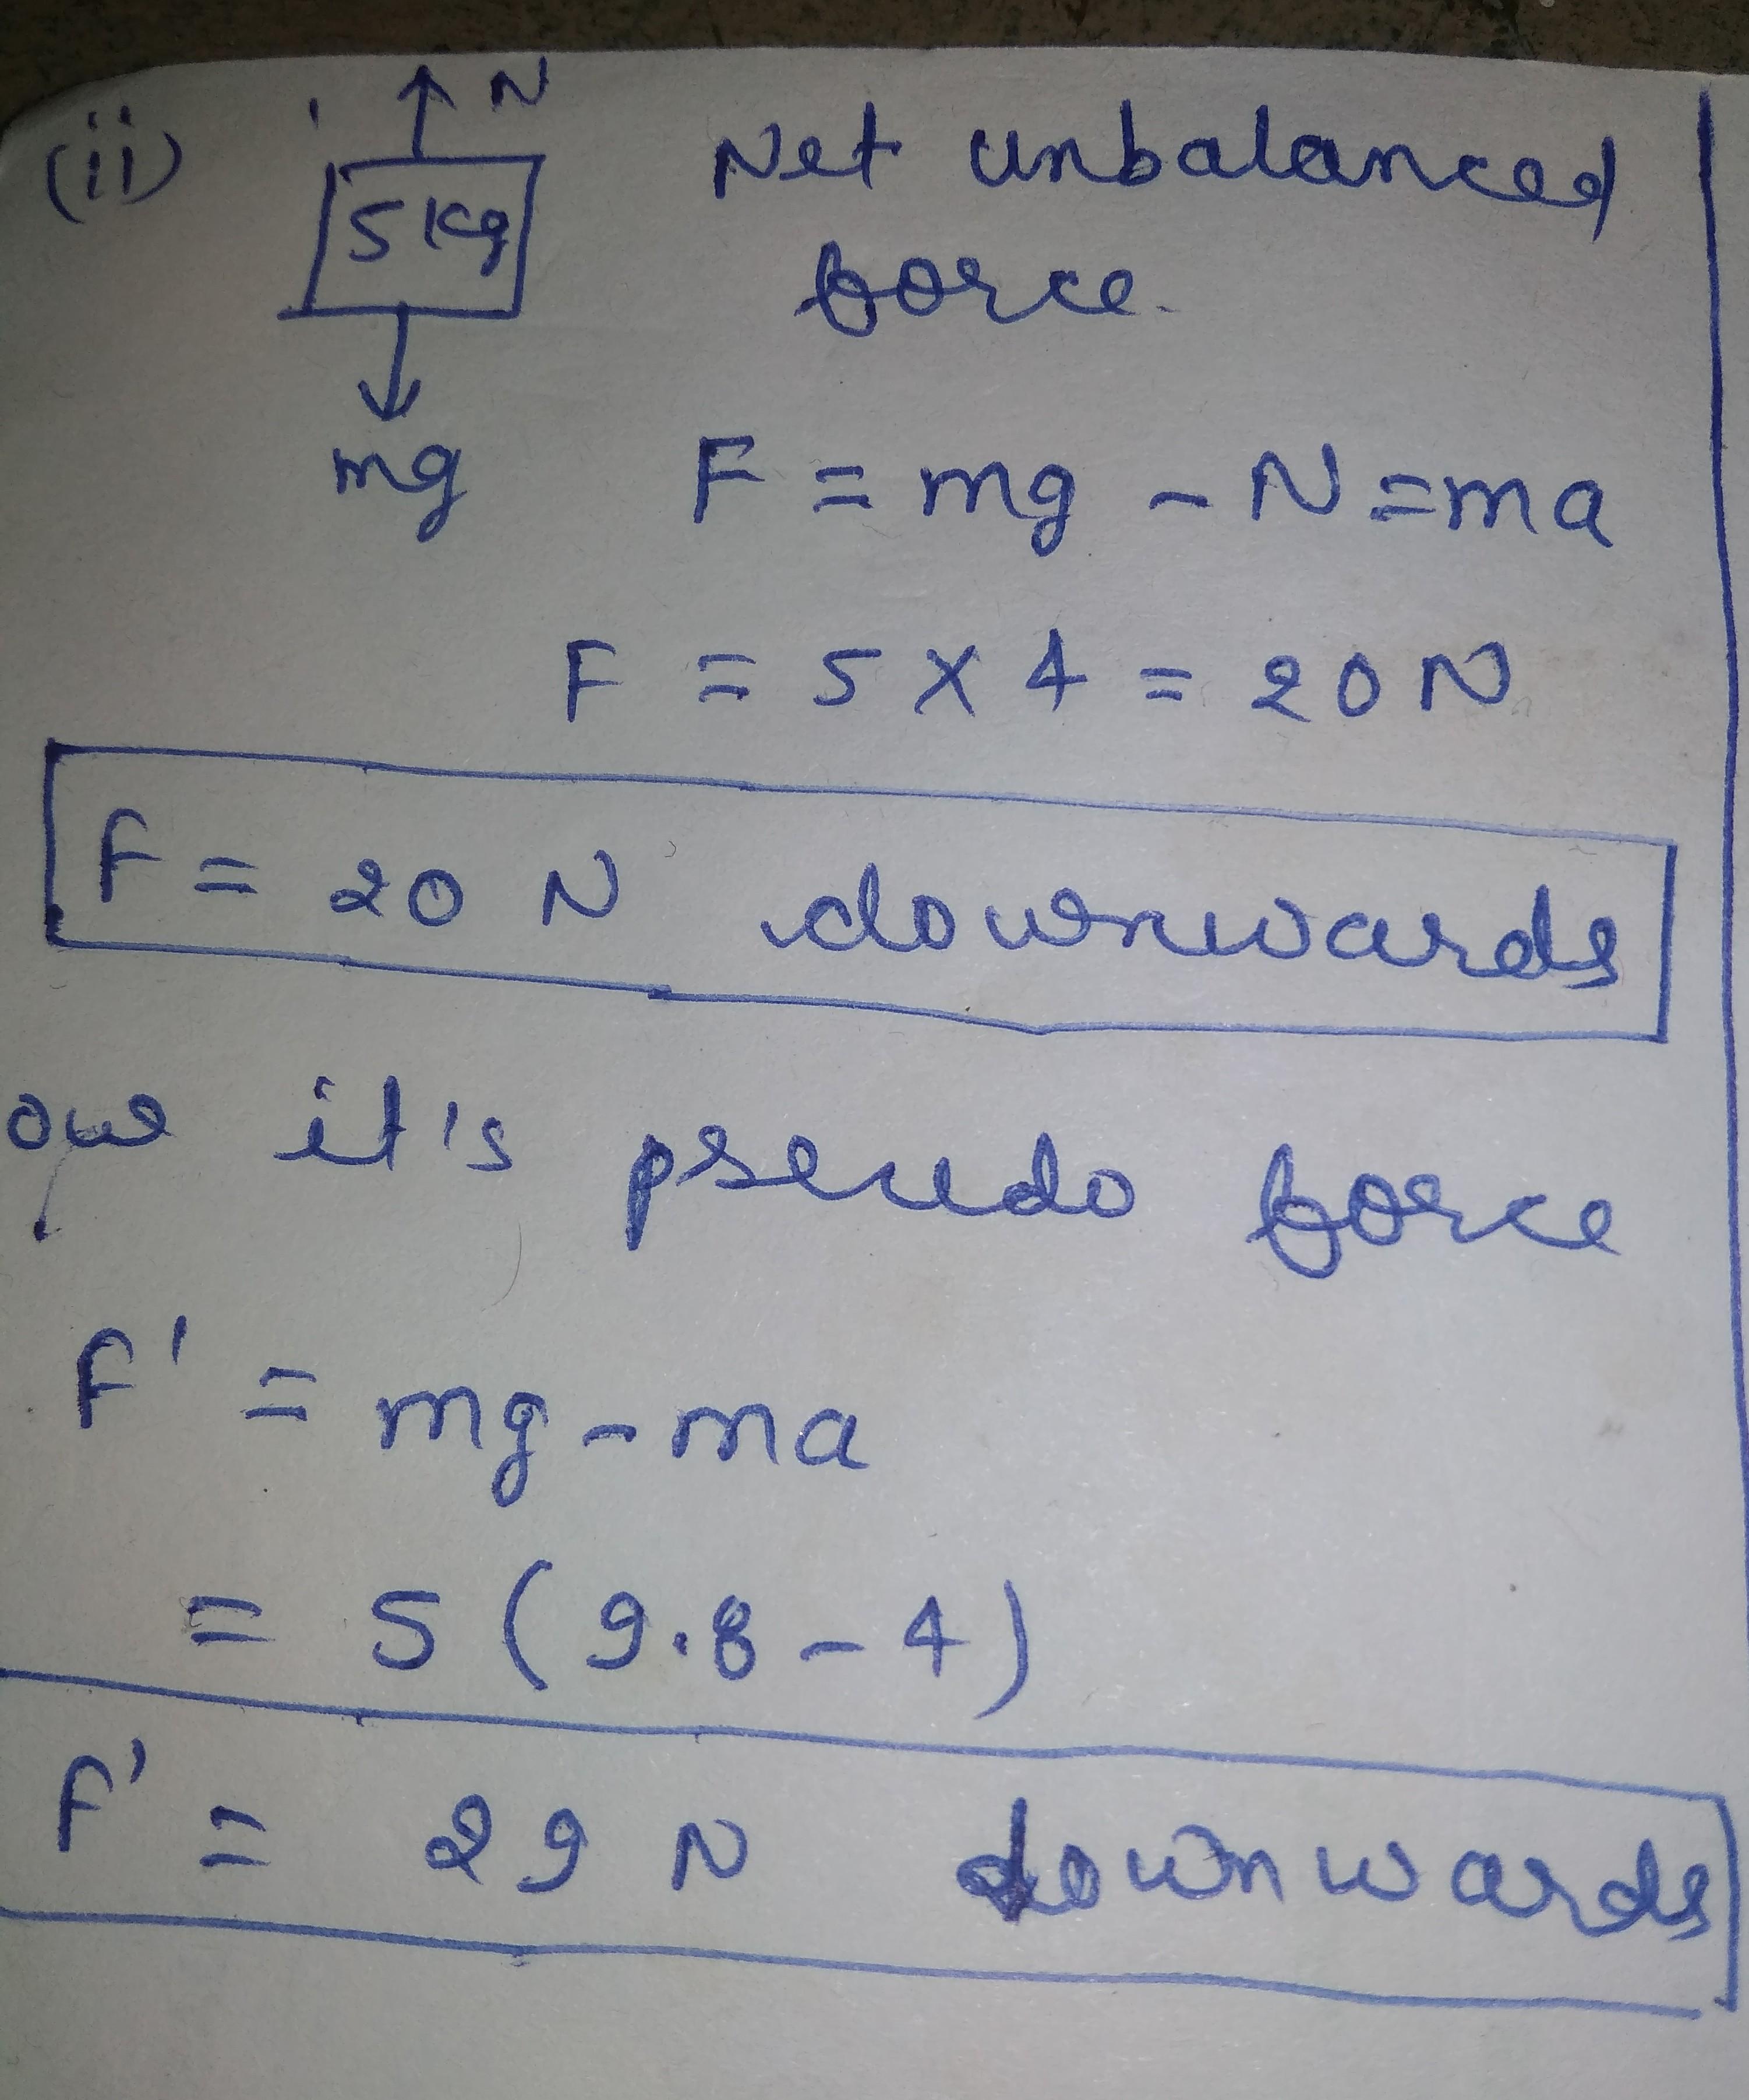 (ii)
N
5 kg
mg
Net unbalanced
force.
F = mg - N = ma
F = 5 × 4 = 20 N
F = 20 N downwards
our it's pseudo force
F' = mg - ma
= 5 (9.8 - 4)
F' = 29 N downwards